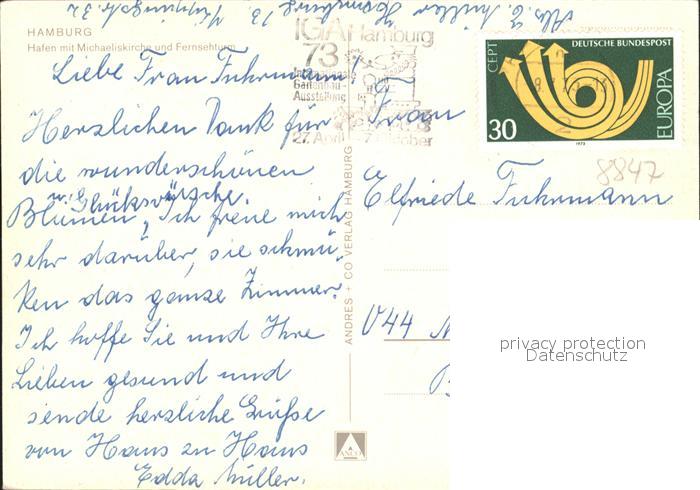 Abs. E. Müller Hamburg 73
HAMBURG
Hafen mit Michaeliskirche und Fernsehturm
IGA Hamburg
73
Internationale
Gartenbau-
Ausstellung
27. April - 7. Oktober
CEPT
DEUTSCHE BUNDESPOST
EUROPA
30
1973
8847
Liebe Frau Fuhrmann!
Herzlichen Dank für
die wunderschönen
u. Glückwünsche.
Blumen, Ich freue mich
sehr darüber, sie schmü-
ken das ganze Zimmer.
Ich hoffe Sie und Ihre
Lieben gesund und
sende herzliche Grüße
von Haus zu Haus
Edda Müller.
Frau
Elfriede Fuhrmann
V44
ANDRES + CO VERLAG HAMBURG
ANCO
privacy protection
Datenschutz